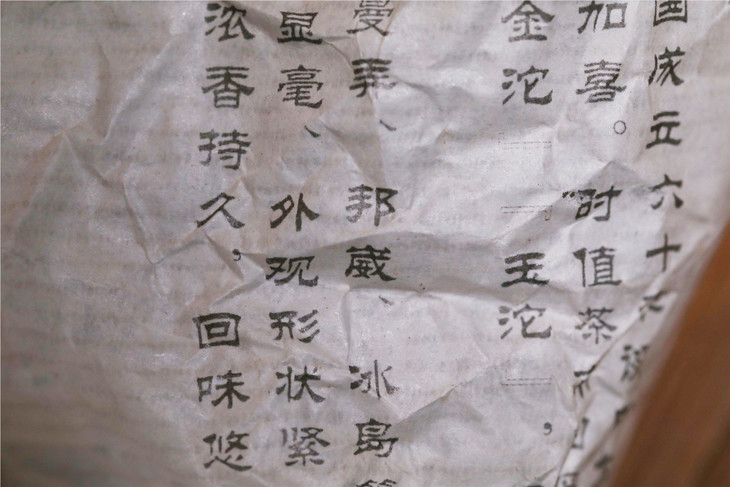 国成立六十
加喜。时值茶
金沱』『玉沱』，
曼弄、邦崴、冰岛
显毫、外观形状紧
浓香持久，回味悠